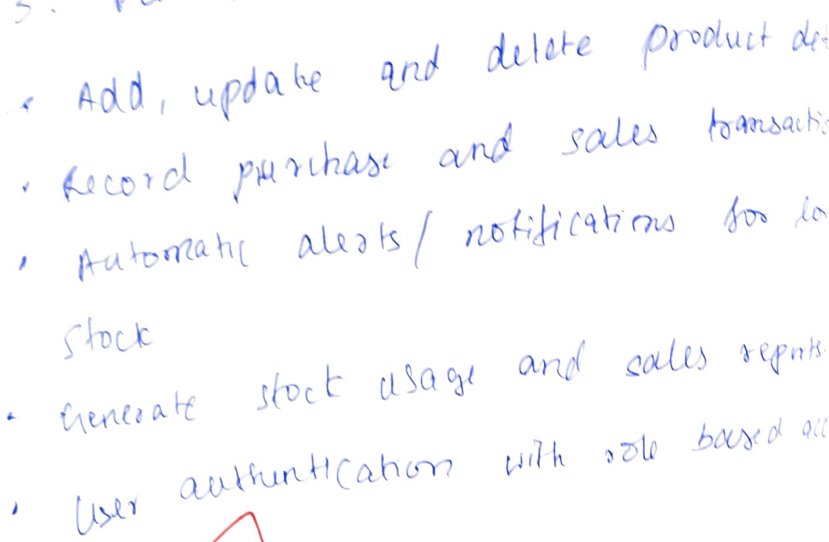 • Add, update and delete product det
• Record purchase and sales transactio
• Automatic alerts/ notifications for lo
stock
• Generate stock usage and sales reports.
• User authentication with role based acc